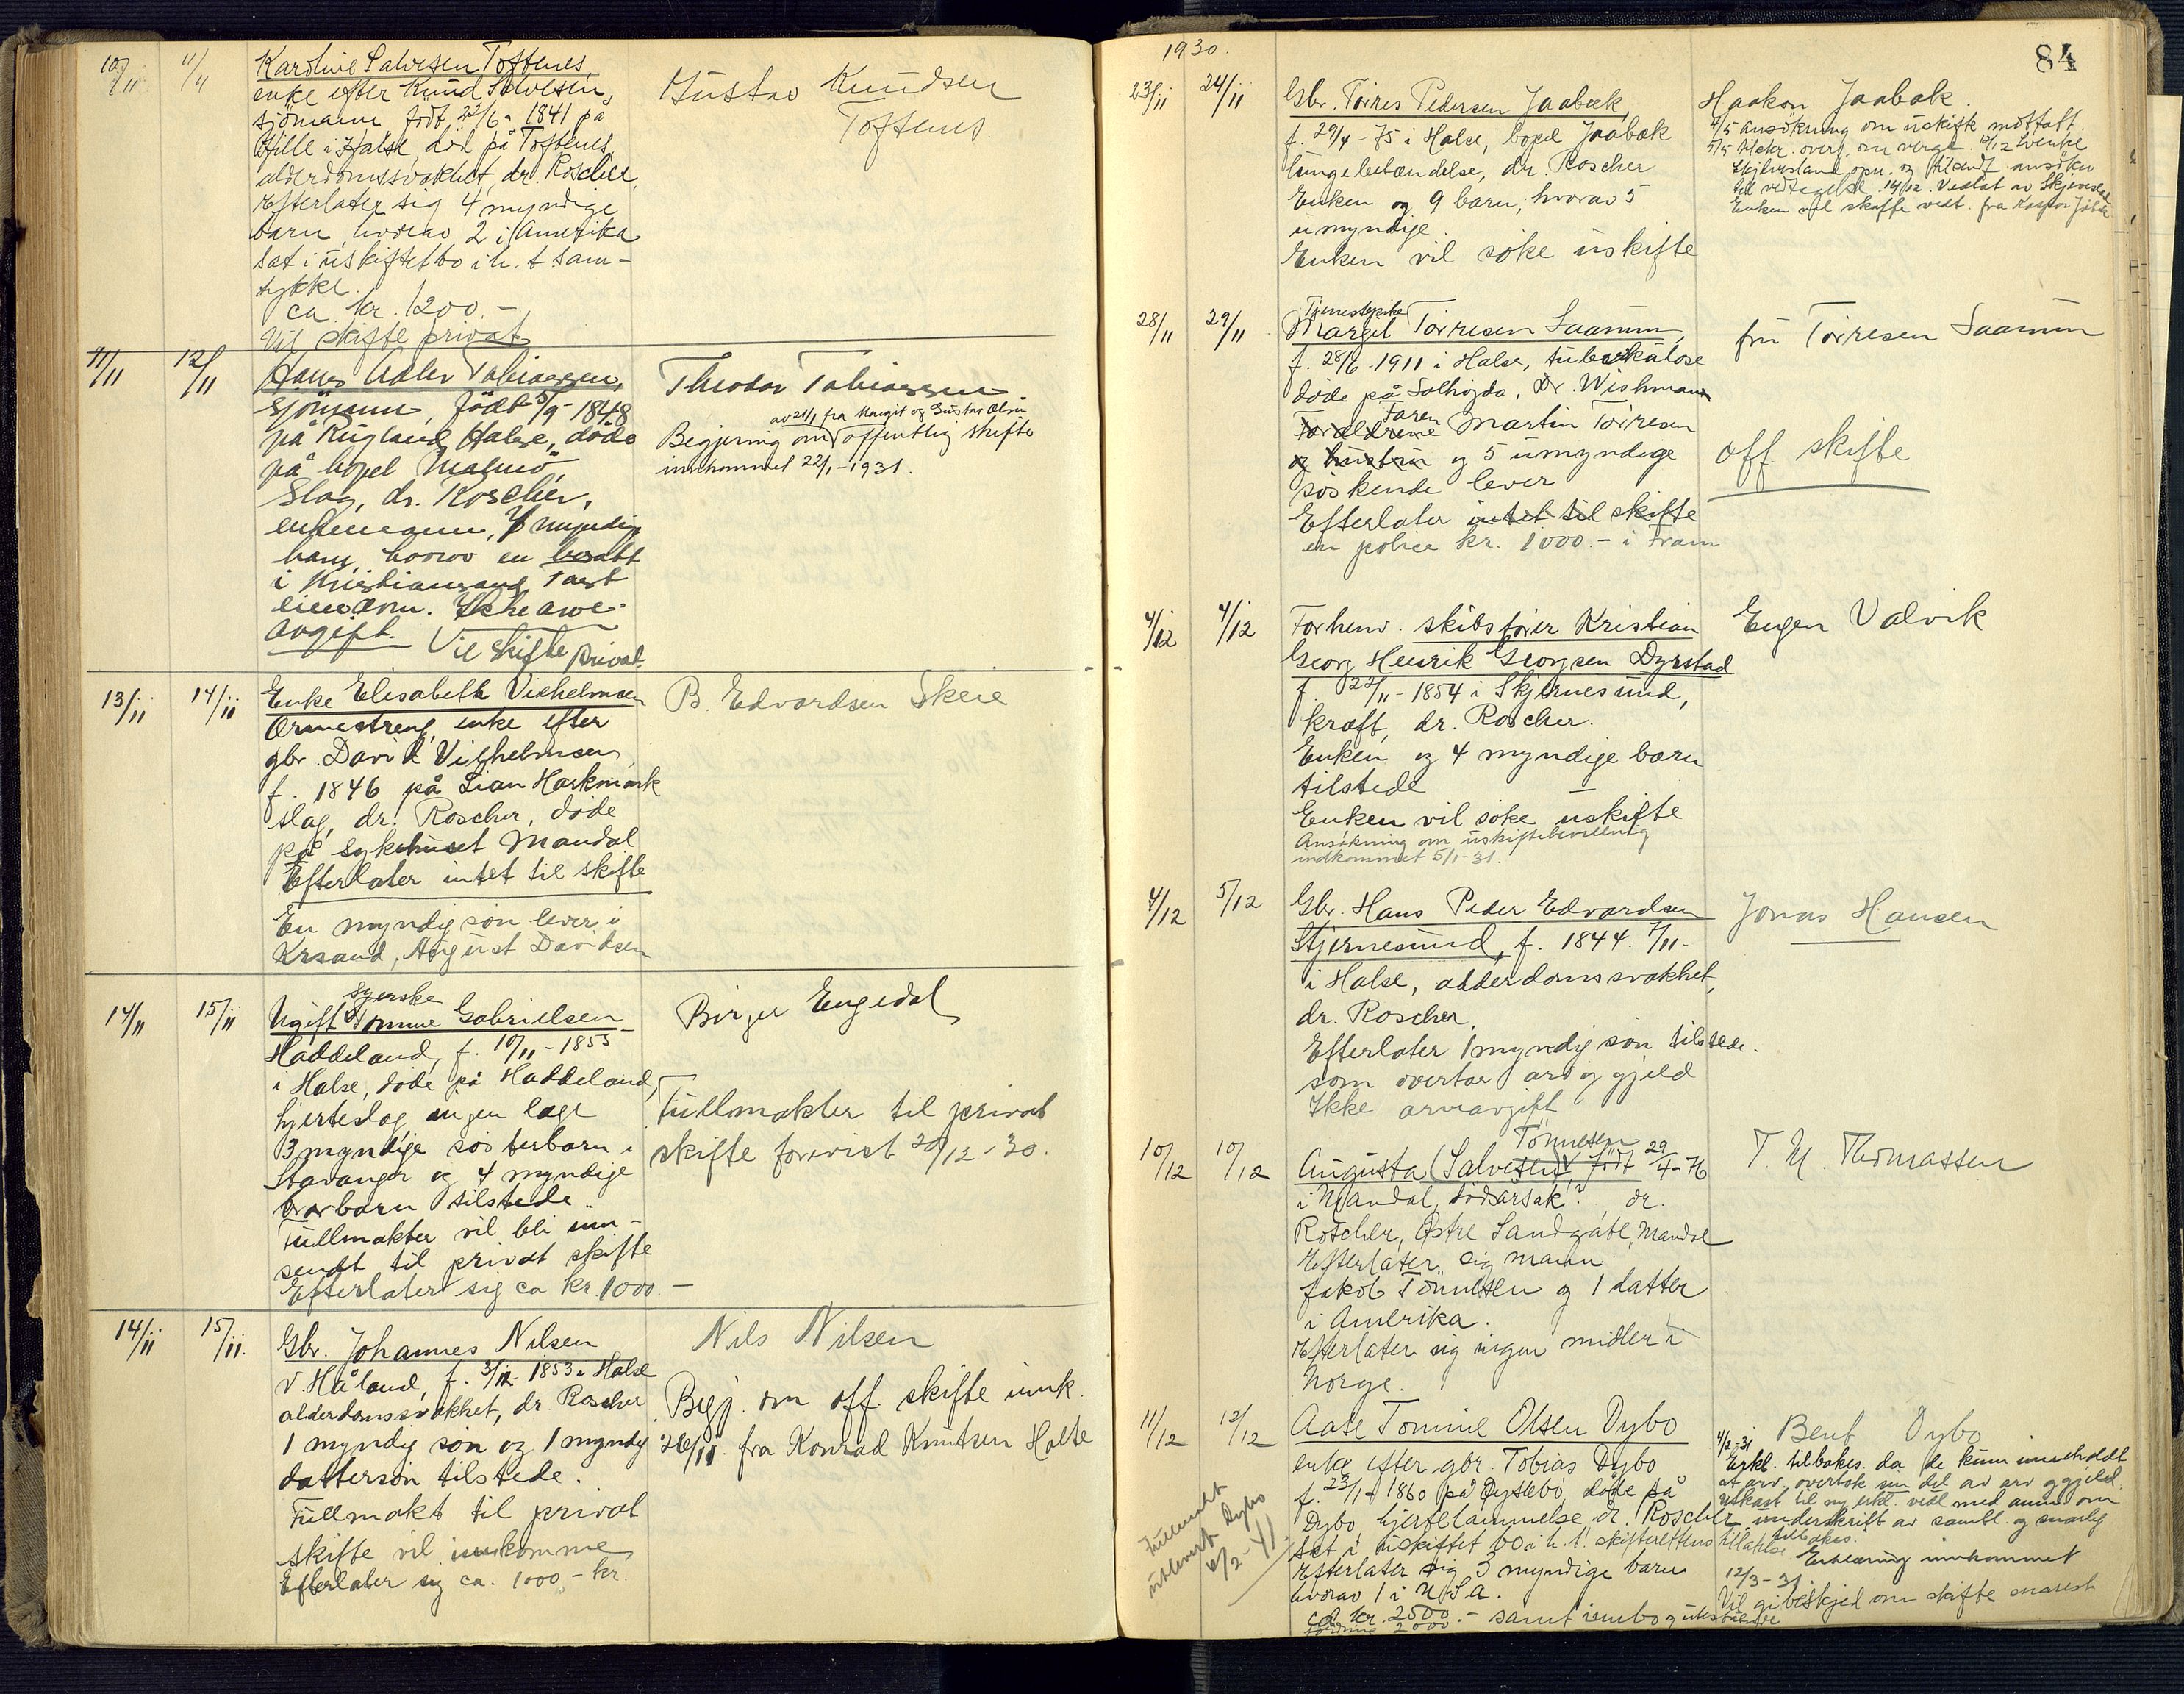 10/11 11/11 Karoline Salvesen Toftenes,
enke efter Knud Salvesen,
sjömann födt 22/6 - 1841 på
Hille i Halse, död på Toftenes,
alderdomssvakhet, dr. Roscher,
Efterlater sig 4 myndige
barn, hvorav 2 i Amerika
Sat i uskiftet bo i h. t. sam-
tykke.
ca kr. 1200.-
Vil skifte privat
Gustav Knudsen
Toftenes.
11/11 12/11 Hans Adler Tobiassen,
Sjömann, födt 5/9 - 1848
på Rugland, Halse, döde
på bopel Malmö,
Slag, dr. Roscher,
enkemann, myndig
barn, hvorav en bosatt
i Kristiansand
Ikke arve-
avgift. Vil skifte privat.
Theodor Tobiassen
av 21/1 fra Margit og Gustav Olsen
Begjering om offentlig skifte
innkommet 22/1 - 1931.
13/11 14/11 Enke Elisabeth Vilhelmsen
Ormestreng, enke efter
gbr. David Vilhelmsen,
f. 1846 på Lian Harkmark
slag, dr. Roscher, döde
på sykehuset Mandal
Efterlater intet til skifte
En myndig sön lever i
Krsand, August Davidsen
B. Edvardsen Skeie
14/11 15/11 Ugift syerske Tomine Gabrielsen
Haddeland, f. 10/11 - 1855
i Halse, döde på Haddeland,
hjerteslag ingen læge
3 myndige sösterbarn i
Stavanger og 4 myndige
brorbarn tilstede
Fullmakter vil bli inn-
sendt til privat skifte
Efterlater sig ca kr. 1000.-
Birger Engedal
Fullmakter til privat
skifte forevist 20/12 - 30.
14/11 15/11. Gbr. Johannes Nilsen
V. Håland, f. 3/12 1853 i Halse
alderdomssvakhet, dr. Roscher
1 myndig sön og 1 myndig
dattersön tilstede.
Fullmakt til privat
skifte vil innkomme
Efterlater sig ca. 1000 - kr.
Nils Nilsen
Begj. om off skifte innk.
26/11. fra Konrad Knutsen Holte
1930.
84
23/11 24/11 Gbr. Torres Pedersen Jaabæk,
f. 29/4 - 75 i Halse, bopel Jaabæk
lungebetændelse, dr. Roscher
Enken og 9 barn, hvorav 5
umyndige.
Enken vil söke uskifte
Haakon Jaabæk.
4/5 Ansökning om uskifte mottatt.
5/5 overf. om verge. 12/12
Skjævesland opn. og tilsendt ansöken
til vedtagelse. 14/12. Vedtat av Skjævesland
Enken vil skaffe vedt. fra Kaspar Jåbæk
28/11 29/11 Tjenestepike
Margit Torresen Saanum,
f. 28/6 1911 i Halse, tuberkulose
döde på Solhögda, Dr. Wishmann
Foreldrene Faren Martin Torresen
og hustru og 5 umyndige
söskende lever
Efterlater intet til skifte
en police kr. 1000.- i Fram
fru Torresen Saanum
off. skifte
4/12 4/12 Forhenv. skibsförer Kristian
Georg Henrik Georgsen Dyrstad
f. 22/11 - 1854 i Skjernesund,
kræft, dr. Roscher.
Enken og 4 myndige barn
tilstede
Enken vil söke uskifte
Ansökning om uskiftebevilling
indkommet 5/1 - 31.
Eugen Valvik
4/12 5/12 Gbr. Hans Peder Edvardsen
Skjernesund, f. 1844. 7/11 -
i Halse, alderdomssvakhet,
dr. Roscher,
Efterlater 1 myndig sön tilstede.
som overtar arv og gjeld
Ikke arveavgift
Jonas Hansen
10/12 10/12 Tönnesen
Augusta (Salvesen) født 29/4 - 76
i Mandal, dödsårsak? dr.
Roscher, Østre Sandgate, Mandal
Efterlater sig mann
Jakob Tönnesen og 1 datter
i Amerika.
Efterlater sig ingen midler i
Norge.
T. M. Thomassen
11/12 12/12 Aase Tomine Olsen Dybo
enke efter gbr. Tobias Dybo
f. 23/1 - 1860 på Öyslebö, döde på
Dybo, hjertelammelse dr. Roscher
Sat i uskiftet bo i h. t. skifterettens tillatelse
Efterlater sig 3 myndige barn
hvorav 1 i U S A.
ca kr. 2500.- samt innbo og utestående
fordring 2000
Fullmakt
utlevert Dybo
6/2 - 41
Bent Dybo
4/2 - 31
Erkl. tilbakes. da de kun inneholdt
at arv. overtok sin del av arv og gjeld.
Utkast til ny erkl. vedl med anm om
underskrift av samtl. og snarlig
tilbakes.
Erklæring innkommet
12/3 - 31.
Vil gi beskjed om skifte snarest